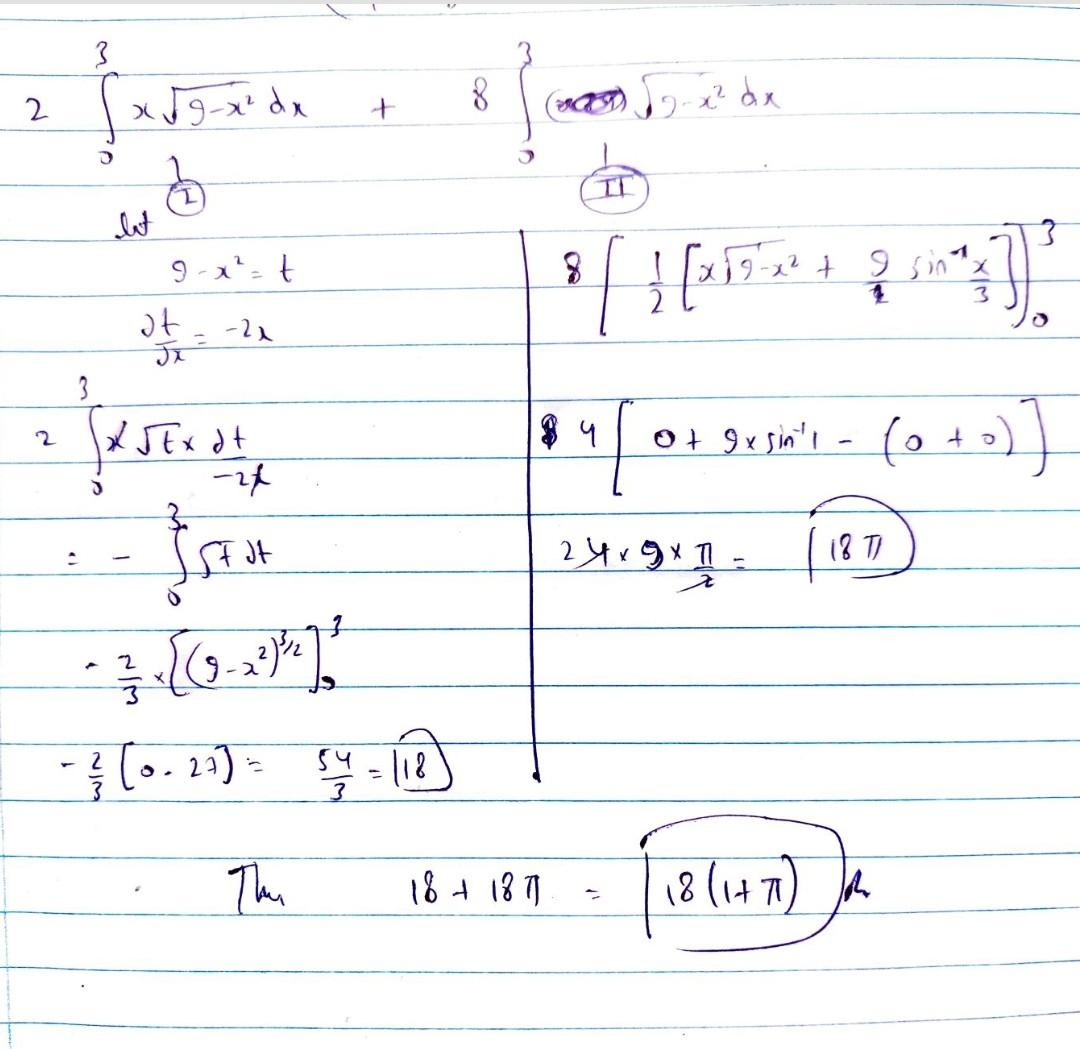 2 ∫₀³ x√9-x² dx + 8 ∫₀³ √9-x² dx
Ⅰ Ⅱ
let
9-x² = t
dt/dx = -2x
2 ∫₀³ x √t x dt/-2x
= - ∫₀³ √t dt
- 2/3 x [(9-x²)^3/2]₀³
- 2/3 [0 - 27] = 54/3 = 18
8 [ 1/2 [x√9-x² + 9 sin⁻¹ x/3 ] ]₀³
4 [ 0 + 9 x sin⁻¹1 - (0 + 0) ]
2 4 x 9 x π/2 = 18π
Thus 18 + 18π = 18(1+π)